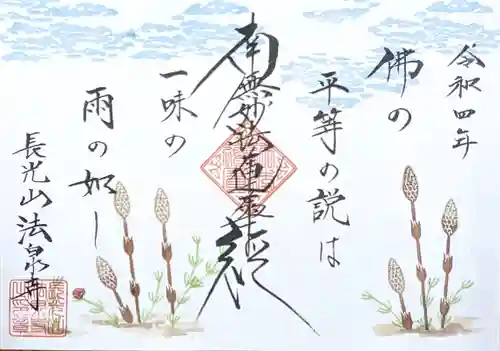 令和四年
佛の
平等の説は
南無妙法蓮華経
一味の
雨の如し
長光山法泉寺